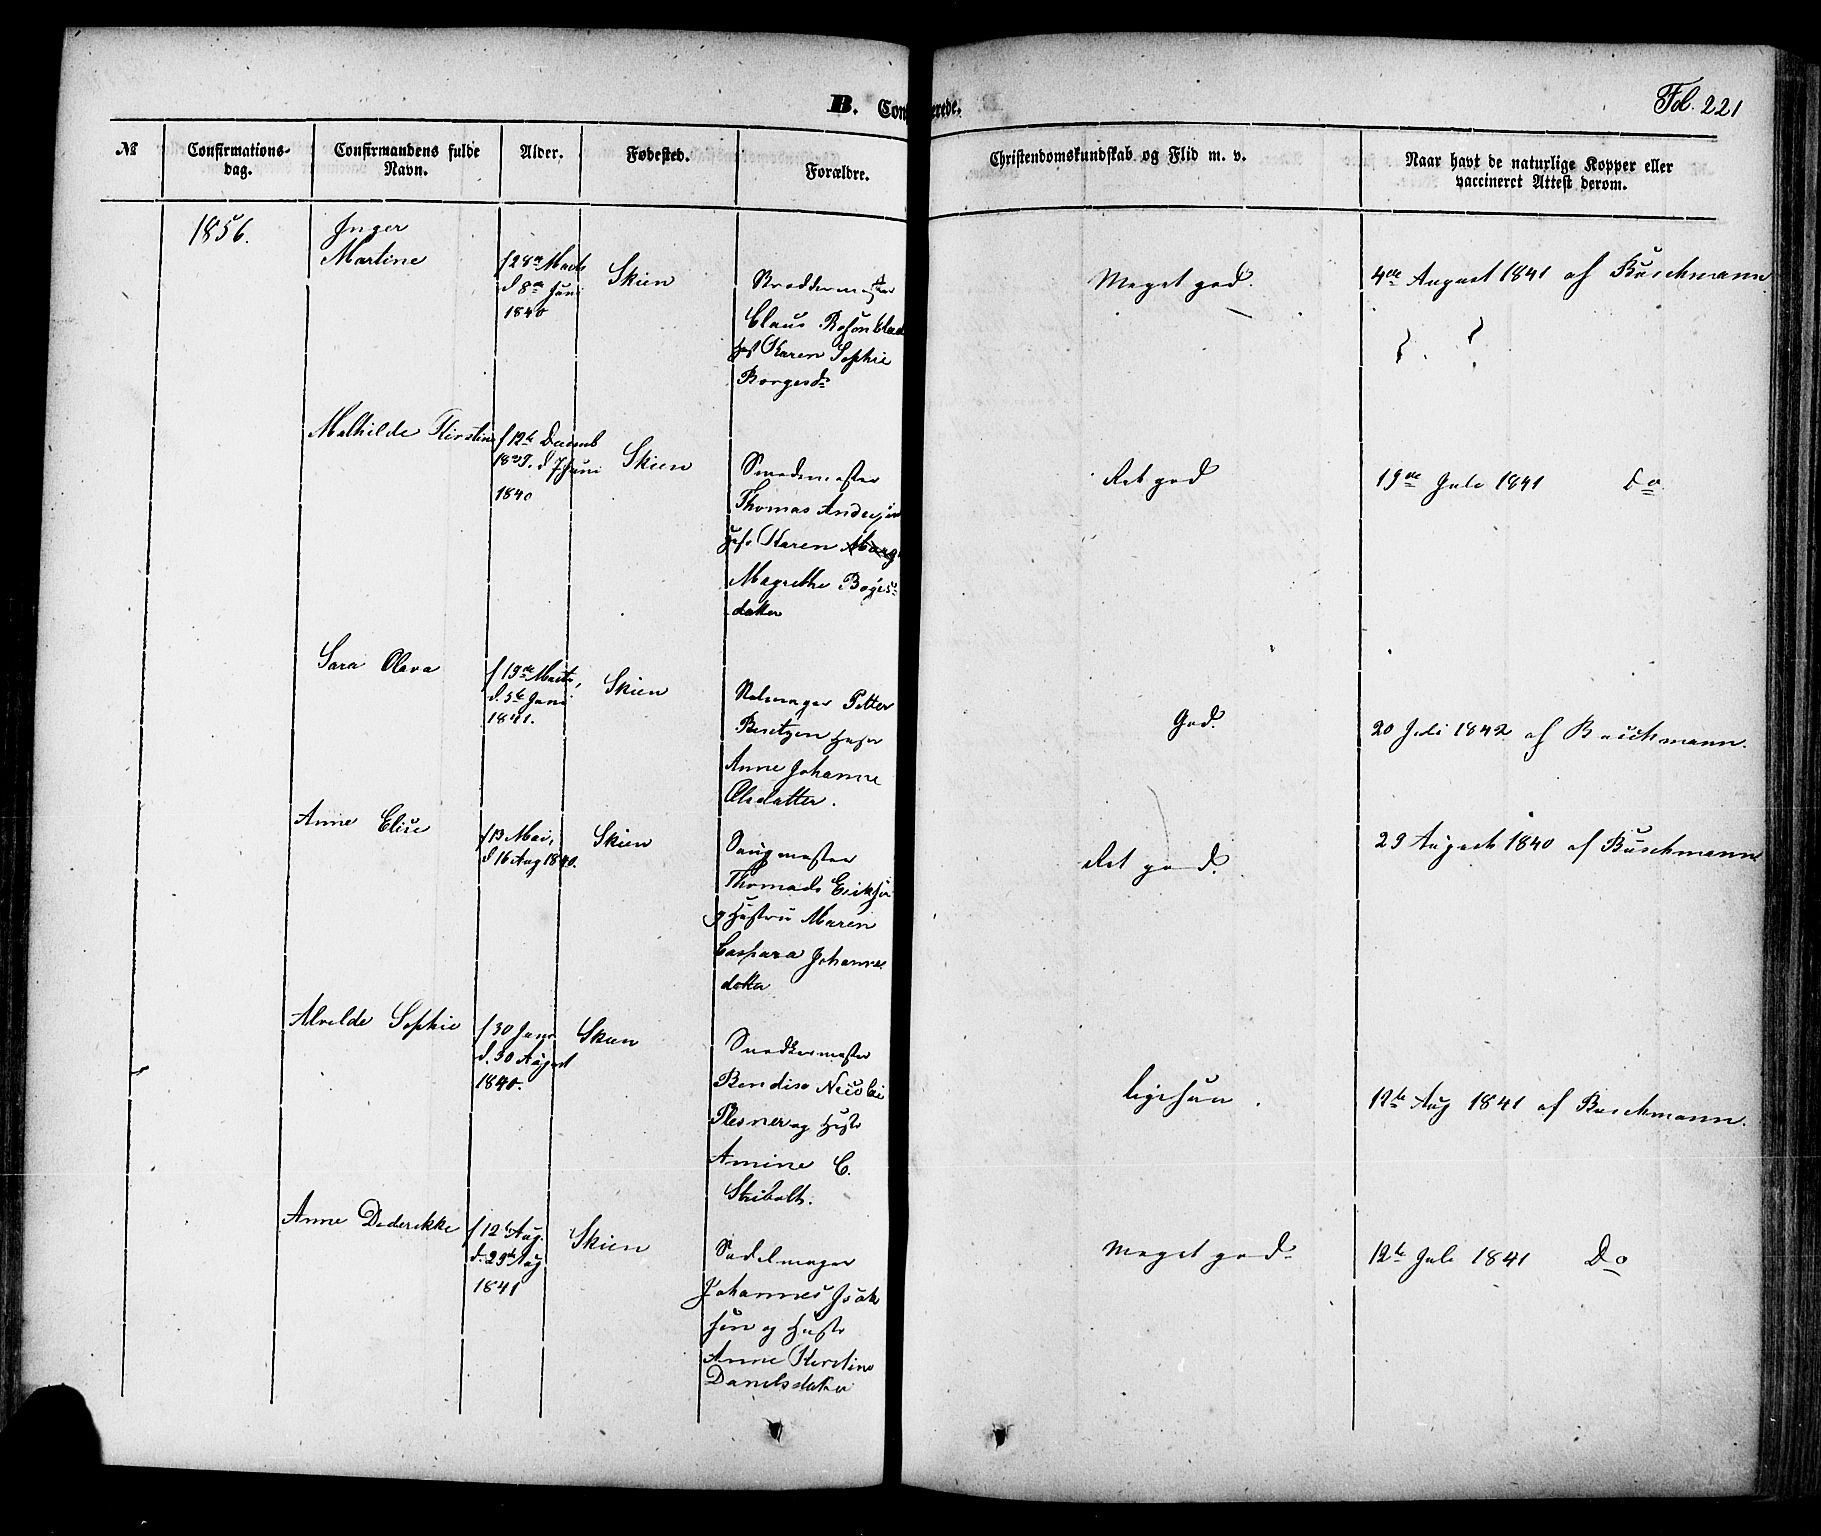 B. Con erede.
Fol. 221
№
Confirmations-
dag.
Confirmandens fulde
Navn.
Alder.
Fødested.
Forældre.
Christendomskundskab og Flid m. v.
Naar havt de naturlige Kopper eller
vaccineret Attest derom.
1856.
Inger
Martine
f 28de Marts
d 8de Juni
1840
Skien
Claus Rosenblad
Karen Sophie
Borgesdr
Meget god.
4de August 1841 af Buschmann
Mathilde Kirstine
f 12te Decemb
1839. d 7 Juni
1840
Skien
Smedemester
Thomas Andersen
Karen Marg
Magrethe Børges-
datter
Ret god
19de Juli 1841 Do
Sara Olava
f 19de Marts,
d. 5te Juni
1841.
Skien
Petter
Berntzen
Anne Johanne
Olsdatter.
God.
20 Juli 1842 af Buschmann.
Anne Elise
f 13 Mai,
d 16 Aug 1840.
Skien
Thomads Eriksen
og Hustru Maren
Caspara Johannes
datter
Ret god.
29 August 1840 af Buschmann
Alvilde Sophie
f 30 Janr
d. 30 August
1840.
Skien
Snedkermester
Bendix Nicolai
Plesner og Hustr
Amine C.
Stibolt.
ligesaa.
12te Aug 1841 af Buschmann.
Anne Dederikke
f 12te Aug.
d. 29de Aug
1841
Skien
Sadelmager
Johannes Isak
sen og Hustr
Anne Kirstine
Danielsdatter
Meget god.
12te Juli 1841 Do